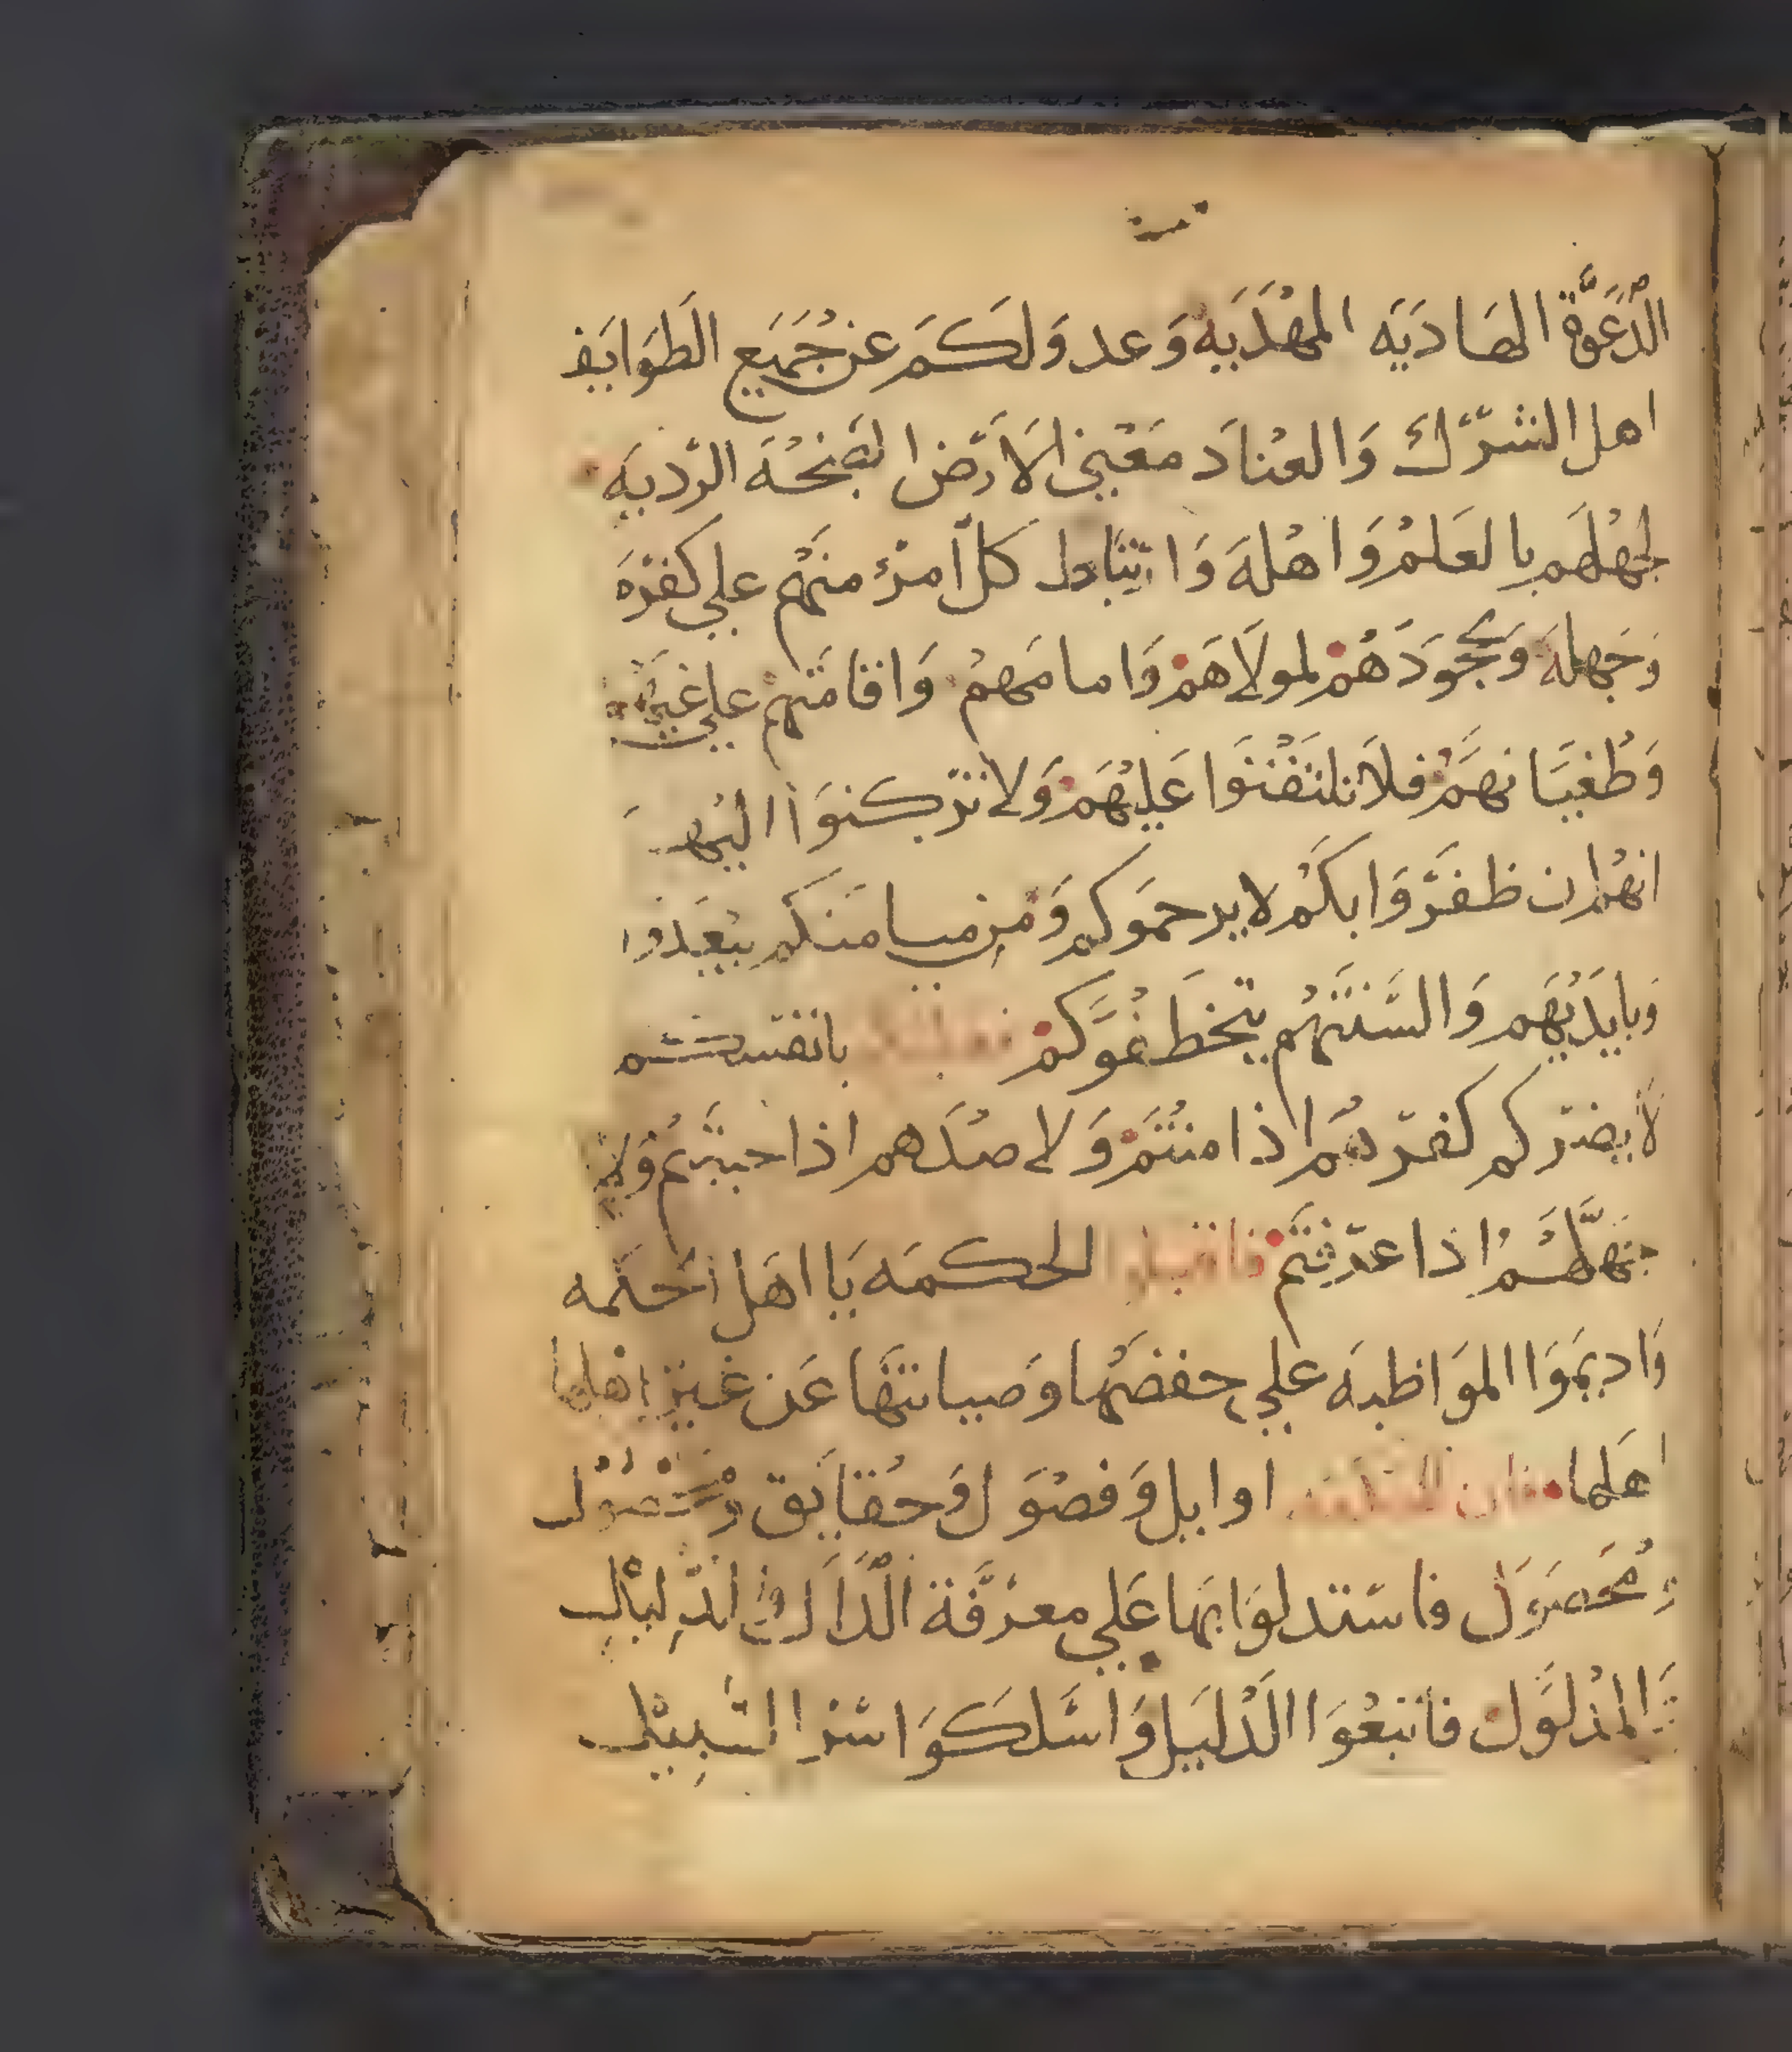 الدعوة الهاديه المهديه وعدولكم عن جميع الطوايف
اهل الشرك والعناد معني الارض الردیه
لجهلهم بالعلم واهله وا كل امرئ منهم علي كفره
وجهله وجحودهم لمولاهم وامامهم واقامتهم علي
وطغيانهم فلا تلتفتوا عليهم ولا تركنوا اليهم
انهم ان ظفروا بكم لا يرحموكم منكم
وبايديهم والسنتهم يتخطفوكم
لا يضركم كفرهم اذا امنتم ولا صدهم اذا
جهلهم اذا عرفتم فاقبلوا الحكمه يا اهل
واديموا المواظبه علي حفضها وصيانتها عن غير اهلها
اهلها فان للحكمه اوايل وفصول وحقايق
ومحصول فاستدلوا بها علي معرفة الدال الدليل
والمدلول فاتبعوا الدليل واسلكوا السبيل